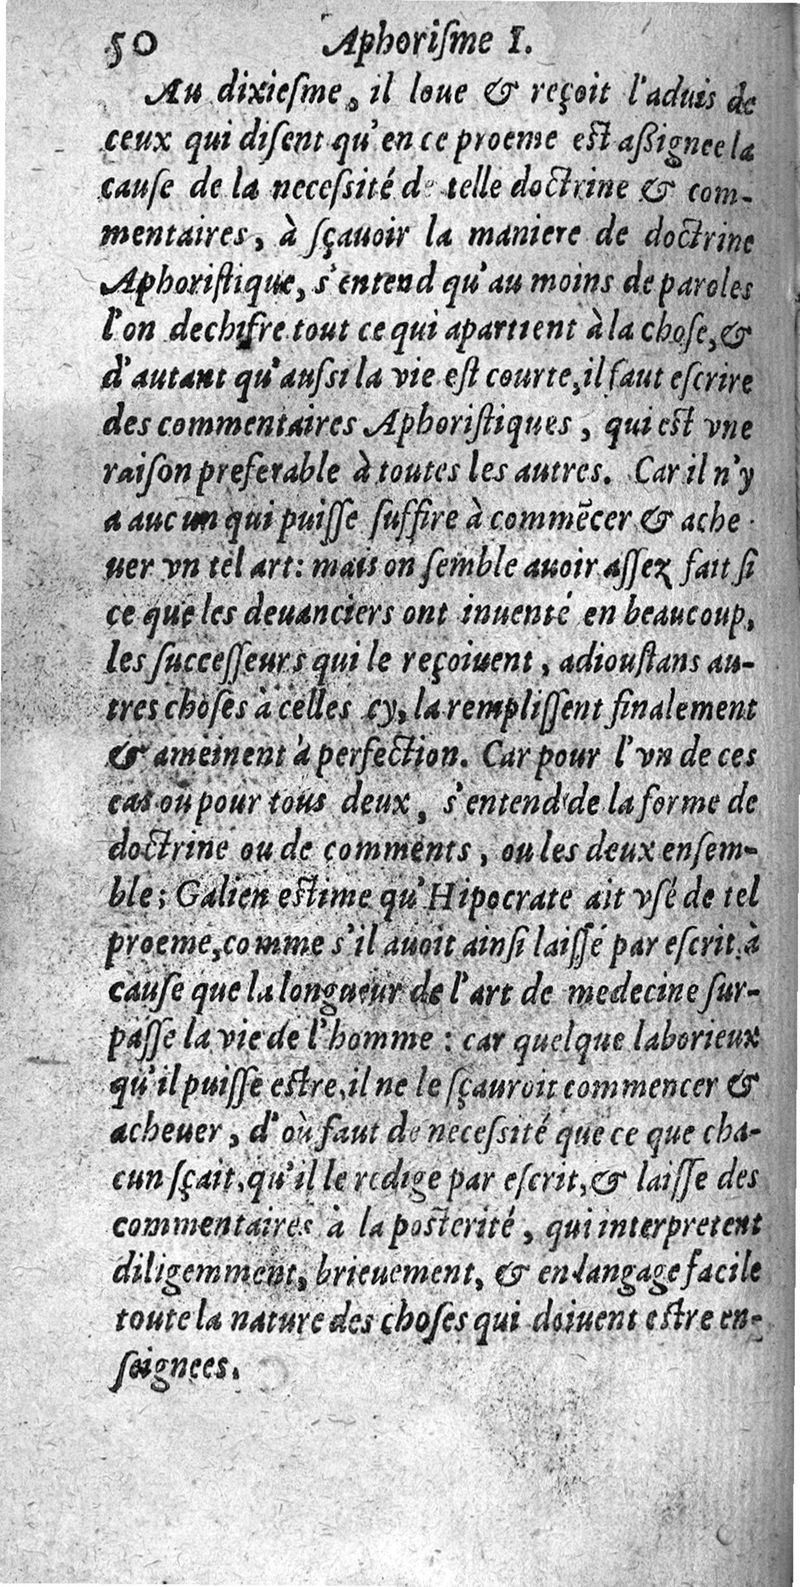 50 Aphoriſme I.
Au dixieſme, il loue & reçoit l'aduis de
ceux qui diſent qu'en ce proeme est aßignee la
cauſe de la neceſsité de telle doctrine & com-
mentaires, à ſçauoir la maniere de doctrine
Aphoriſtique, s'entend qu'au moins de paroles
l'on dechifre tout ce qui apartient à la choſe, &
d'autant qu'auſsi la vie eſt courte, il faut eſcrire
des commentaires Aphoriſtiques, qui est vne
raiſon preferable à toutes les autres. Car il n'y
a aucun qui puiſſe ſuffire à commẽcer & ache-
uer vn tel art: mais on ſemble auoir aſſez fait ſi
ce que les deuanciers ont inuenté en beaucoup,
les ſucceſſeurs qui le reçoiuent, adiouſtans au-
tres choſes à celles cy, la rempliſſent finalement
& ameinent à perfection. Car pour l'vn de ces
cas ou pour tous deux, s'entend de la forme de
doctrine ou de comments, ou les deux enſem-
ble; Galien estime qu'Hipocrate ait vſé de tel
proeme, comme s'il auoit ainſi laiſſé par eſcrit à
cauſe que la longueur de l'art de medecine ſur-
paſſe la vie de l'homme : car quelque laborieux
qu'il puiſſe estre, il ne le ſçauroit commencer &
acheuer, d'où faut de neceſsité que ce que cha-
cun ſçait, qu'il le redige par eſcrit, & laiſſe des
commentaires à la posterité, qui interpretent
diligemment, brieuement, & en langage facile
toute la nature des choſes qui doiuent estre en-
ſeignees.